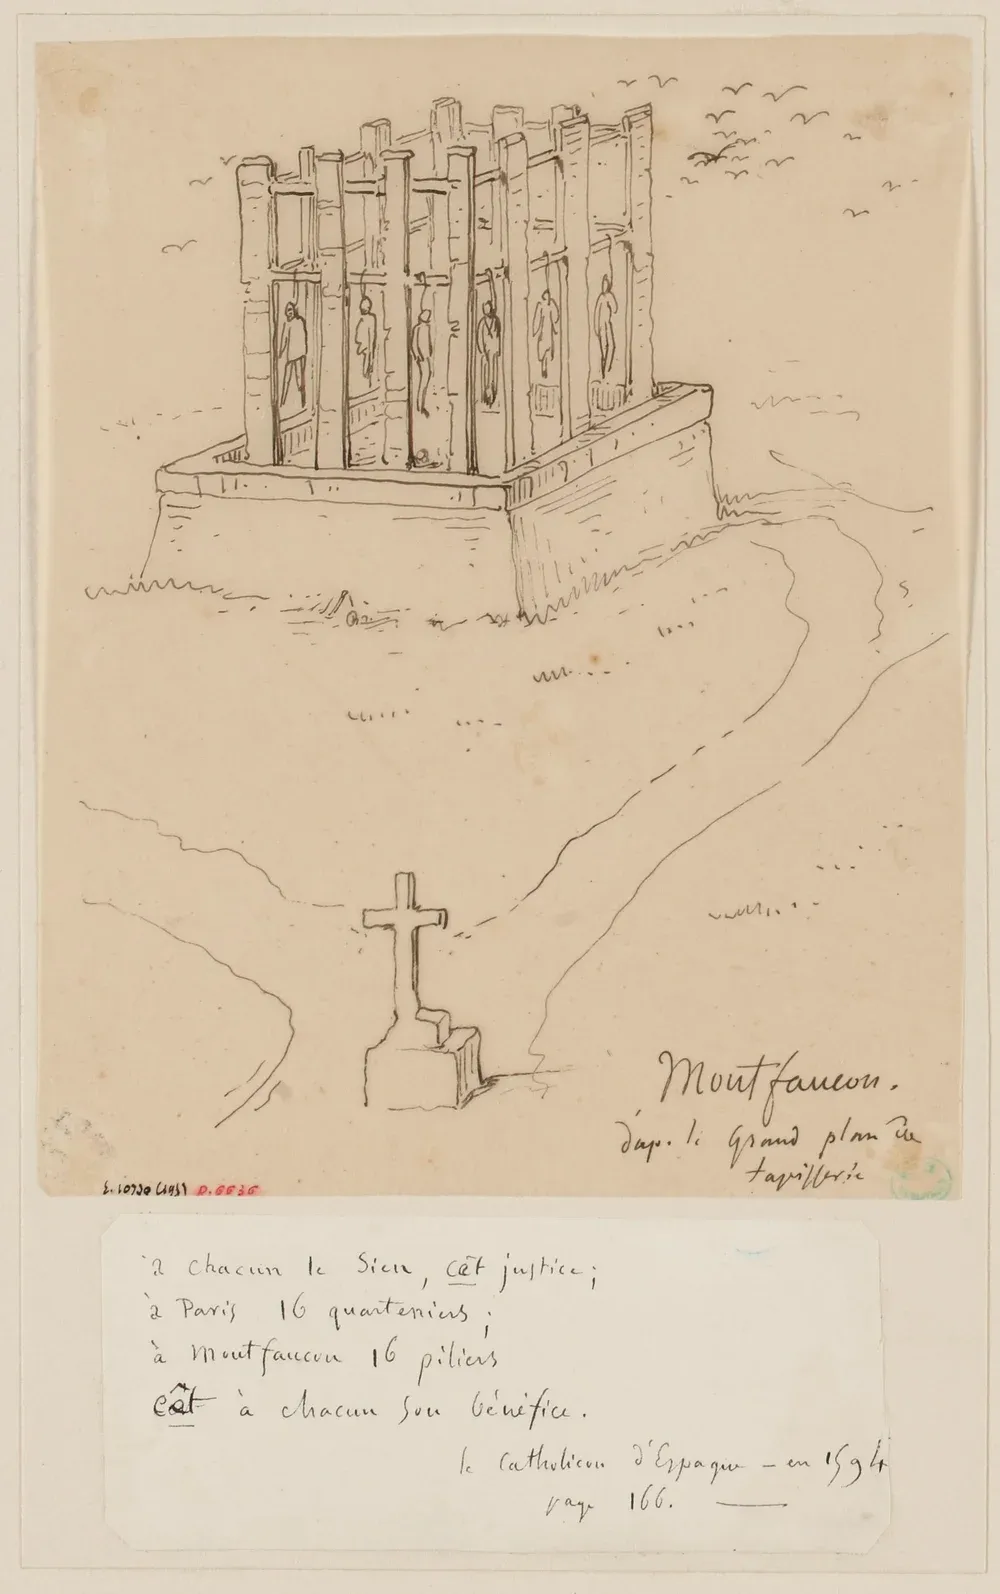 Montfaucon.
dap. le Grand plan de
tapisserie
E. 10730 (1931) D. 6636
à chacun le Sien, cât justice;
à Paris 16 quarteniers;
à Montfaucon 16 piliers
cât à chacun son bénéfice.
le Catholicon d'Espagne – en 1594
page 166.